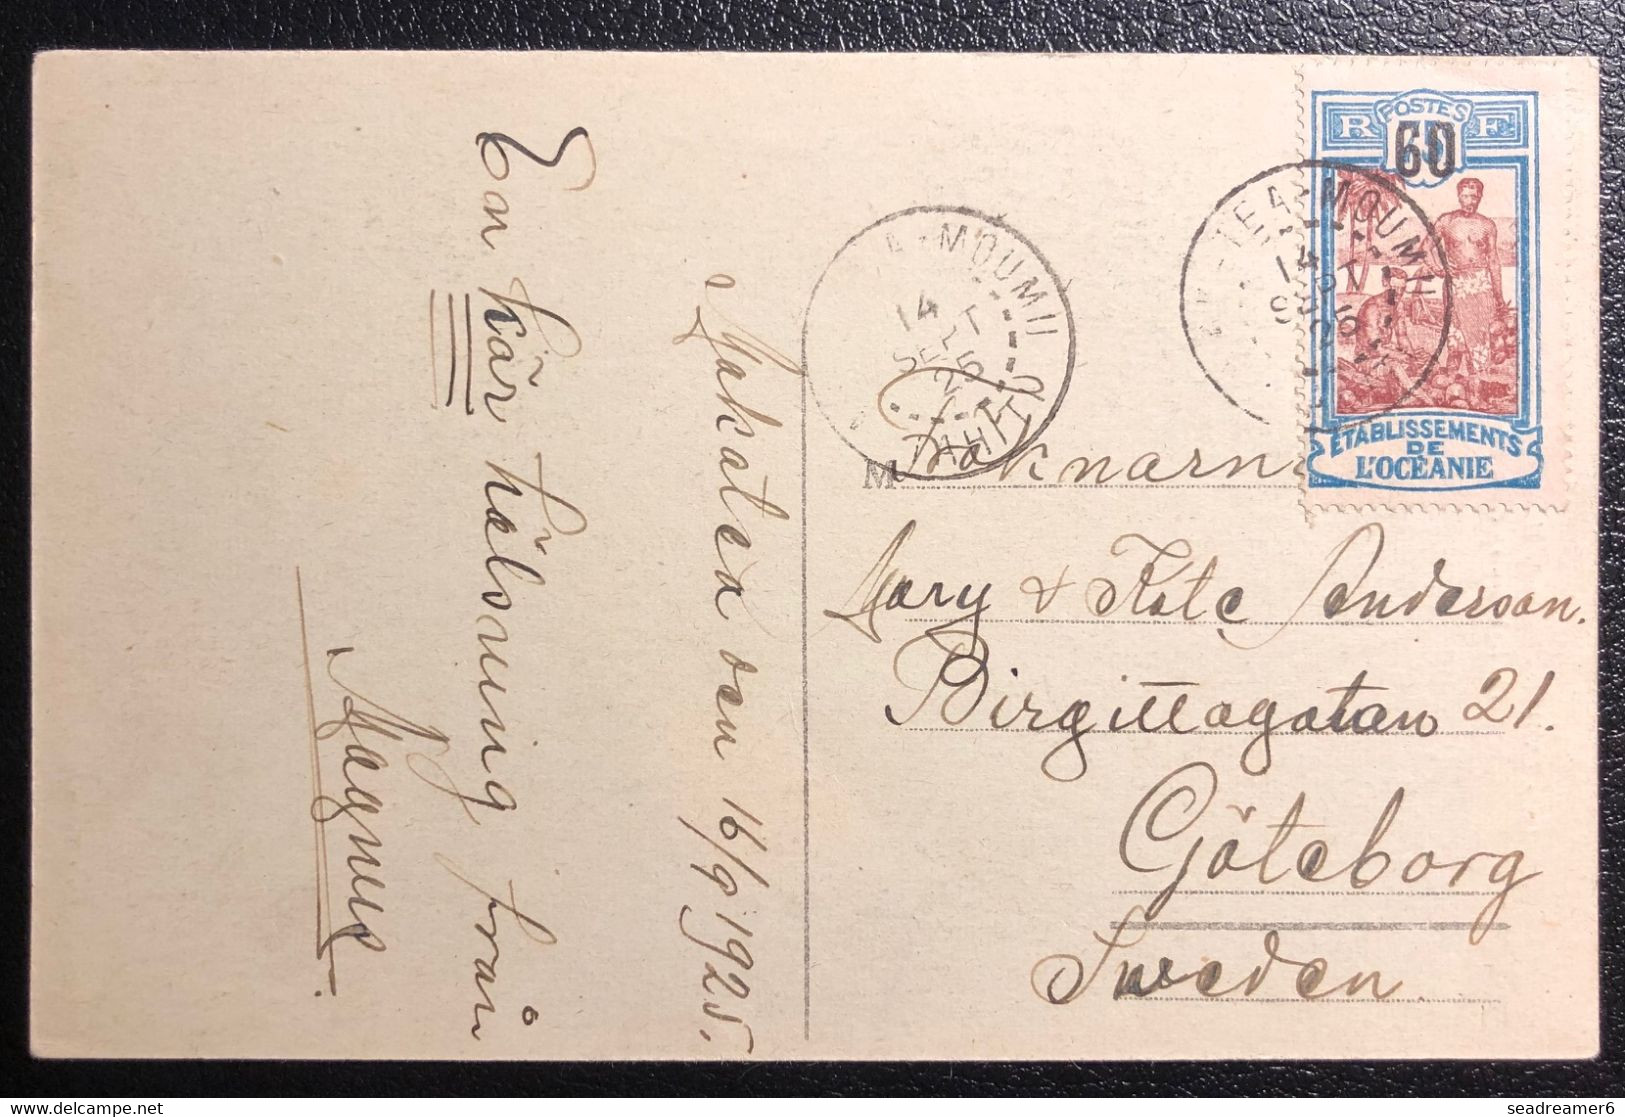 Makatea den 16/9 1925.
En kär hälsning från
Magnus
M
Mary & Kate Anderson.
Birgittagatan 21.
Göteborg
Sweden
POSTES
R F
60
ÉTABLISSEMENTS
DE
L'OCÉANIE
TEA-MOUMU
14
SEPT
25
A-MOUMU
14
SEPT
25
TAHITI
seadreamer6
delcampe.net